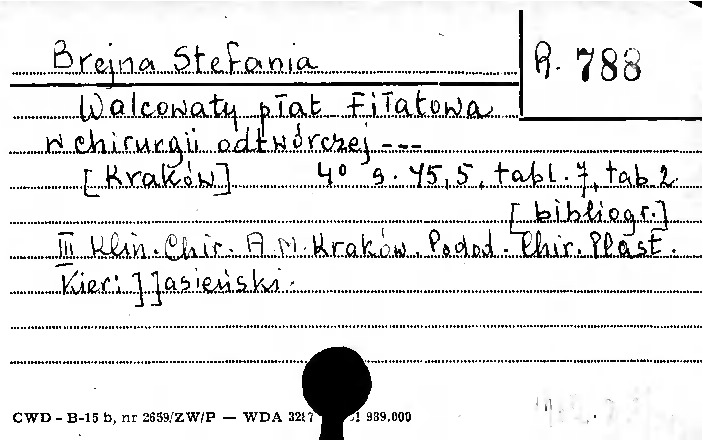 Brejna Stefania
R. 788
Walcowaty płat Fiłatowa
w chirurgii odtwórczej ---
[Kraków] 4° s. 45,5, tabl. 7, tab 2
[bibliogr.]
III Klin. Chir. A.M. Kraków. Podod. Chir. Plast.
Kier: J Jasieński.
CWD - B-15 b, nr 2659/ZW/P — WDA 3217 939.000